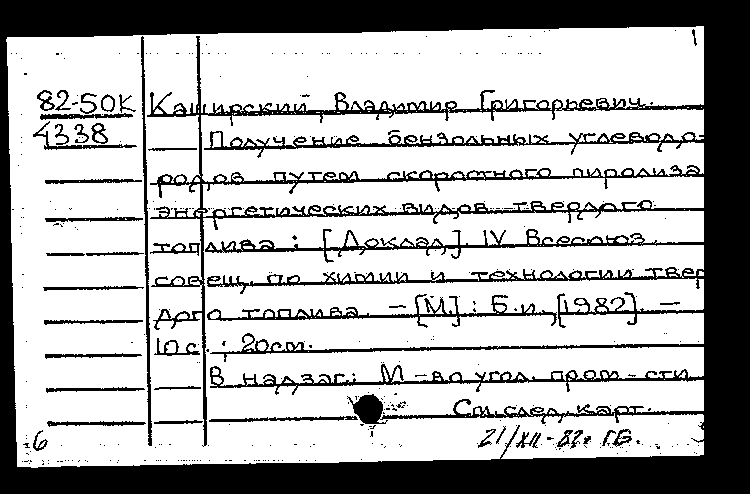 82-50К Каширский, Владимир Григорьевич.
4338 Получение бензольных углеводо-
родов путем скоростного пиролиза
энергетических видов твердого
топлива : [Доклад]. IV Всесоюз.
совещ. по химии и технологии твер
дого топлива. – [М.] : Б.и., [1982]. –
10 с. ; 20 см.
В надзаг.: М-во угол. пром-сти
См. след. карт.
6 21/XII-82г. Г.Б.